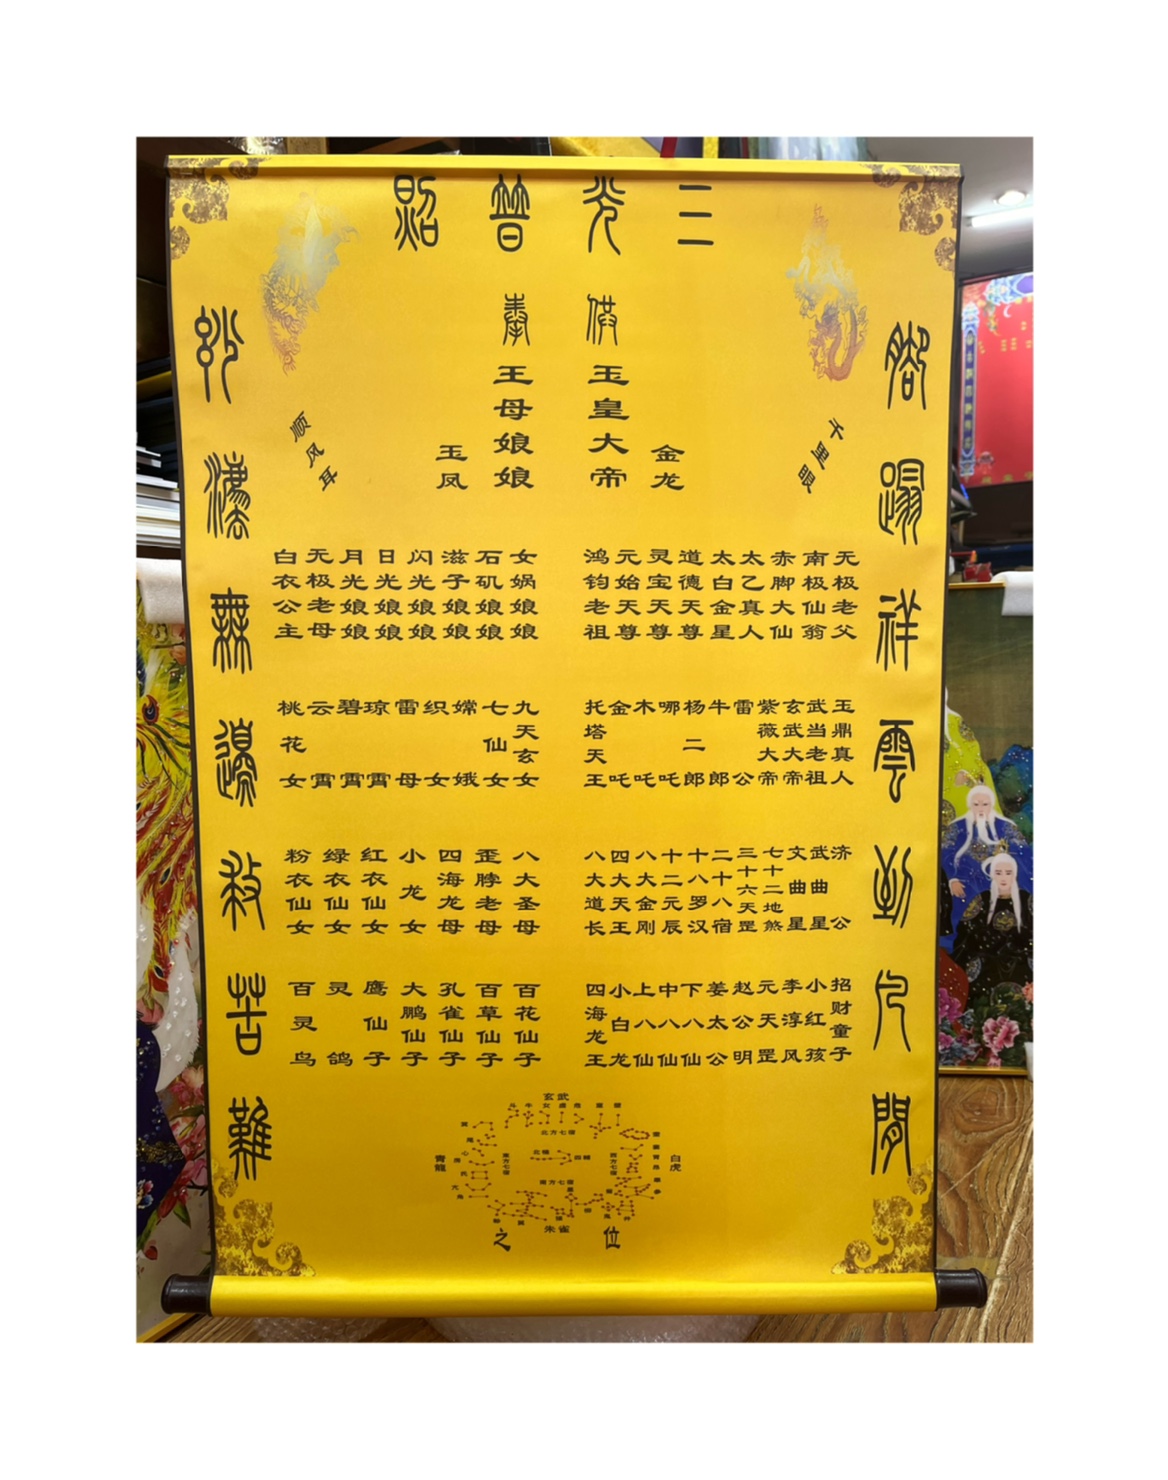 三光普照
脚蹋祥雲到凡間
千里眼
金龙
供
玉皇大帝
奉
王母娘娘
玉凤
顺风耳
无极老父
南极仙翁
赤脚大仙
太乙真人
太白金星
道德天尊
灵宝天尊
元始天尊
鸿钧老祖
女娲娘娘
石矶娘娘
滋子娘娘
闪光娘娘
日光娘娘
月光娘娘
无极老母
白衣公主
玉鼎真人
武当老祖
玄武大帝
紫薇大帝
雷公
牛郎
杨二郎
哪吒
木吒
金吒
托塔天王
九天玄女
七仙女
嫦娥
织女
雷母
琼霄
碧霄
云霄
桃花女
济公
武曲星
文曲星
七十二地煞
三十六天罡
二十八宿
十八罗汉
十二元辰
八大金刚
四大天王
八大道长
八大圣母
歪脖老母
四海龙母
小龙女
红衣仙女
绿衣仙女
粉衣仙女
招财童子
小红孩
李淳风
元天罡
赵公明
姜太公
下八仙
中八仙
上八仙
小白龙
四海龙王
百花仙子
百草仙子
孔雀仙子
大鹏仙子
鹰仙子
灵鸽
百灵鸟
玄武
北方七宿
白虎
西方七宿
青龍
東方七宿
南方七宿
朱雀
之位
妙灋無邊救苦難